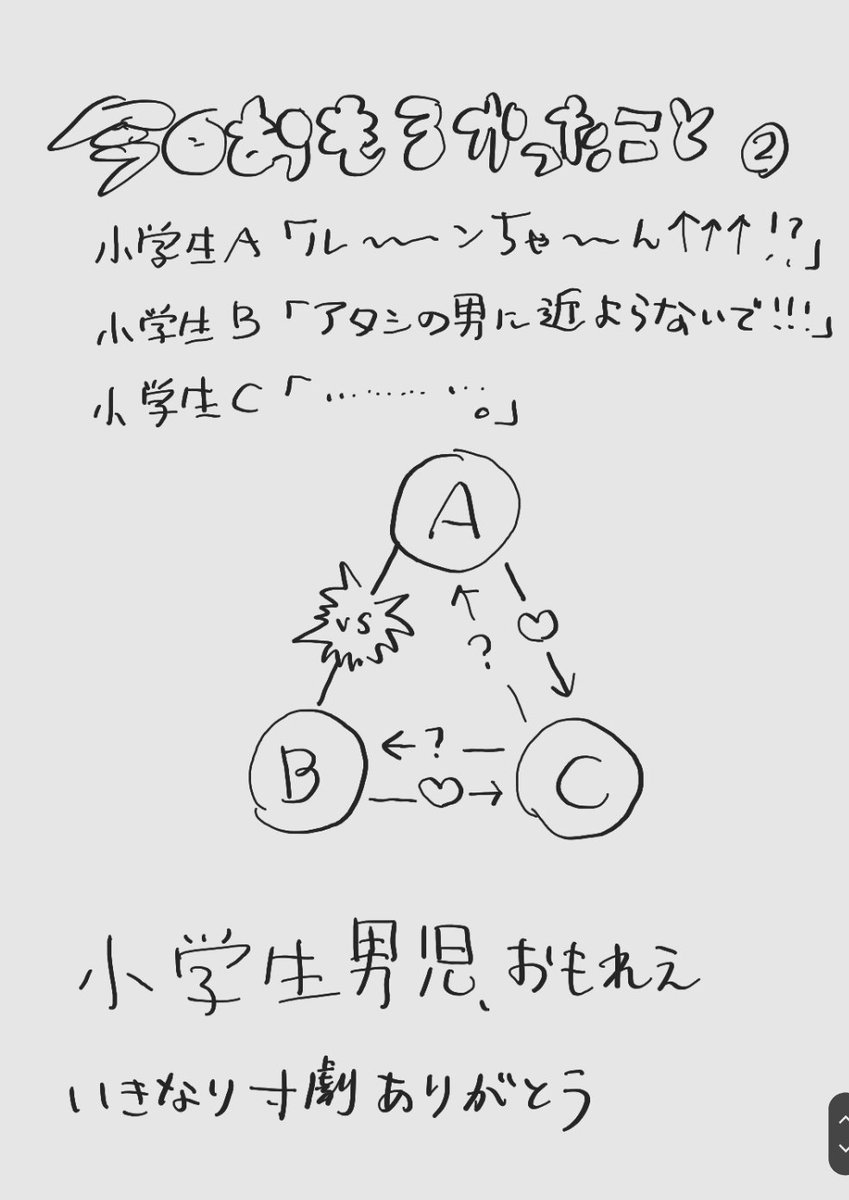 今日おもろかったこと②
小学生A「ル〜〜ンちゃ〜〜ん↑↑↑!?」
小学生B「アタシの男に近ようないで!!!」
小学生C「…………。」
A
vs
?
B
?
C
小学生男児、おもれえ
いきなり寸劇ありがとう